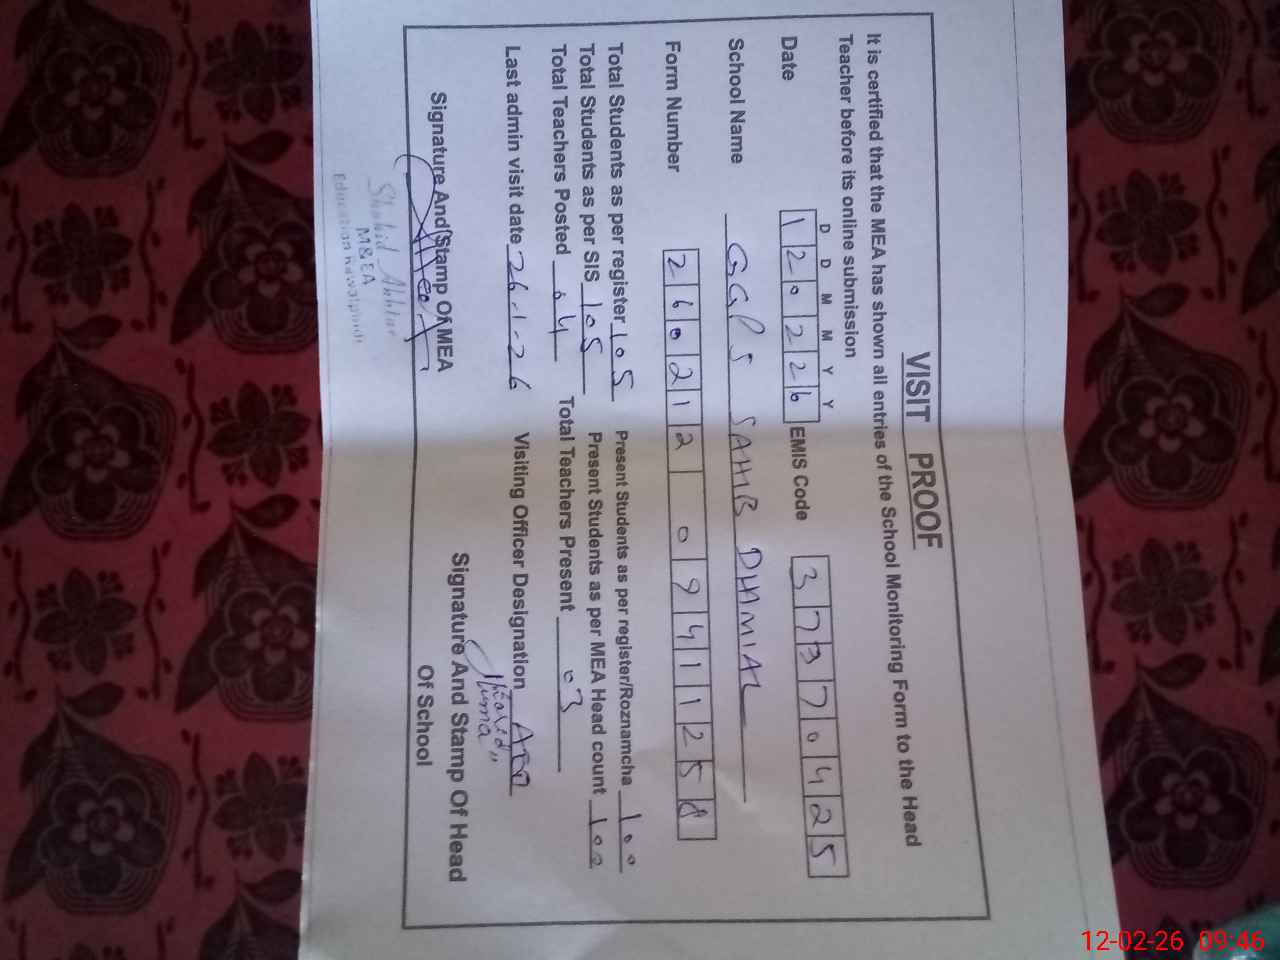 VISIT PROOF
It is certified that the MEA has shown all entries of the School Monitoring Form to the Head
Teacher before its online submission
D D M M Y Y
Date 120226 EMIS Code 37370425
School Name GGPS SAMB DHAMIAL
Form Number 260212 09411258
Total Students as per register 105 Present Students as per register/Roznamcha 100
Total Students as per SIS 105 Present Students as per MEA Head count 100
Total Teachers Posted 04 Total Teachers Present 03
Last admin visit date 26-1-26 Visiting Officer Designation AEO
Signature And Stamp Of MEA Signature And Stamp Of Head
Of School
Shahid Akhtar
M&EA
Education Rawalpindi
12-02-26 09:46